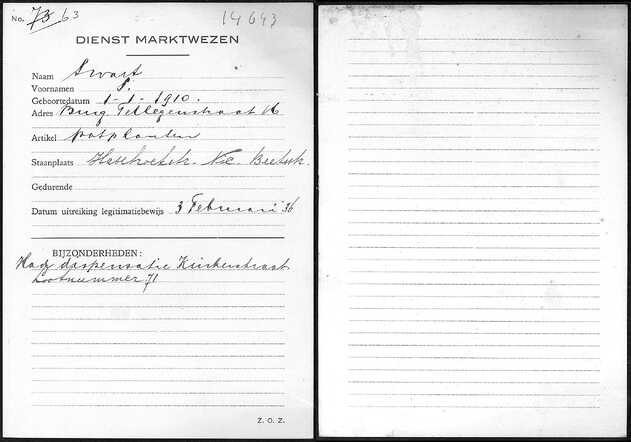 No. 73 63
14643
DIENST MARKTWEZEN
Naam Swart
Voornamen S.
Geboortedatum 1-1-1910.
Adres Burg. Tellegenstraat
Artikel potplanten
Staanplaats
Gedurende
Datum uitreiking legitimatiebewijs 3 Februari 36
BIJZONDERHEDEN:
dispensatie
Lootnummer 71
Z. O. Z.